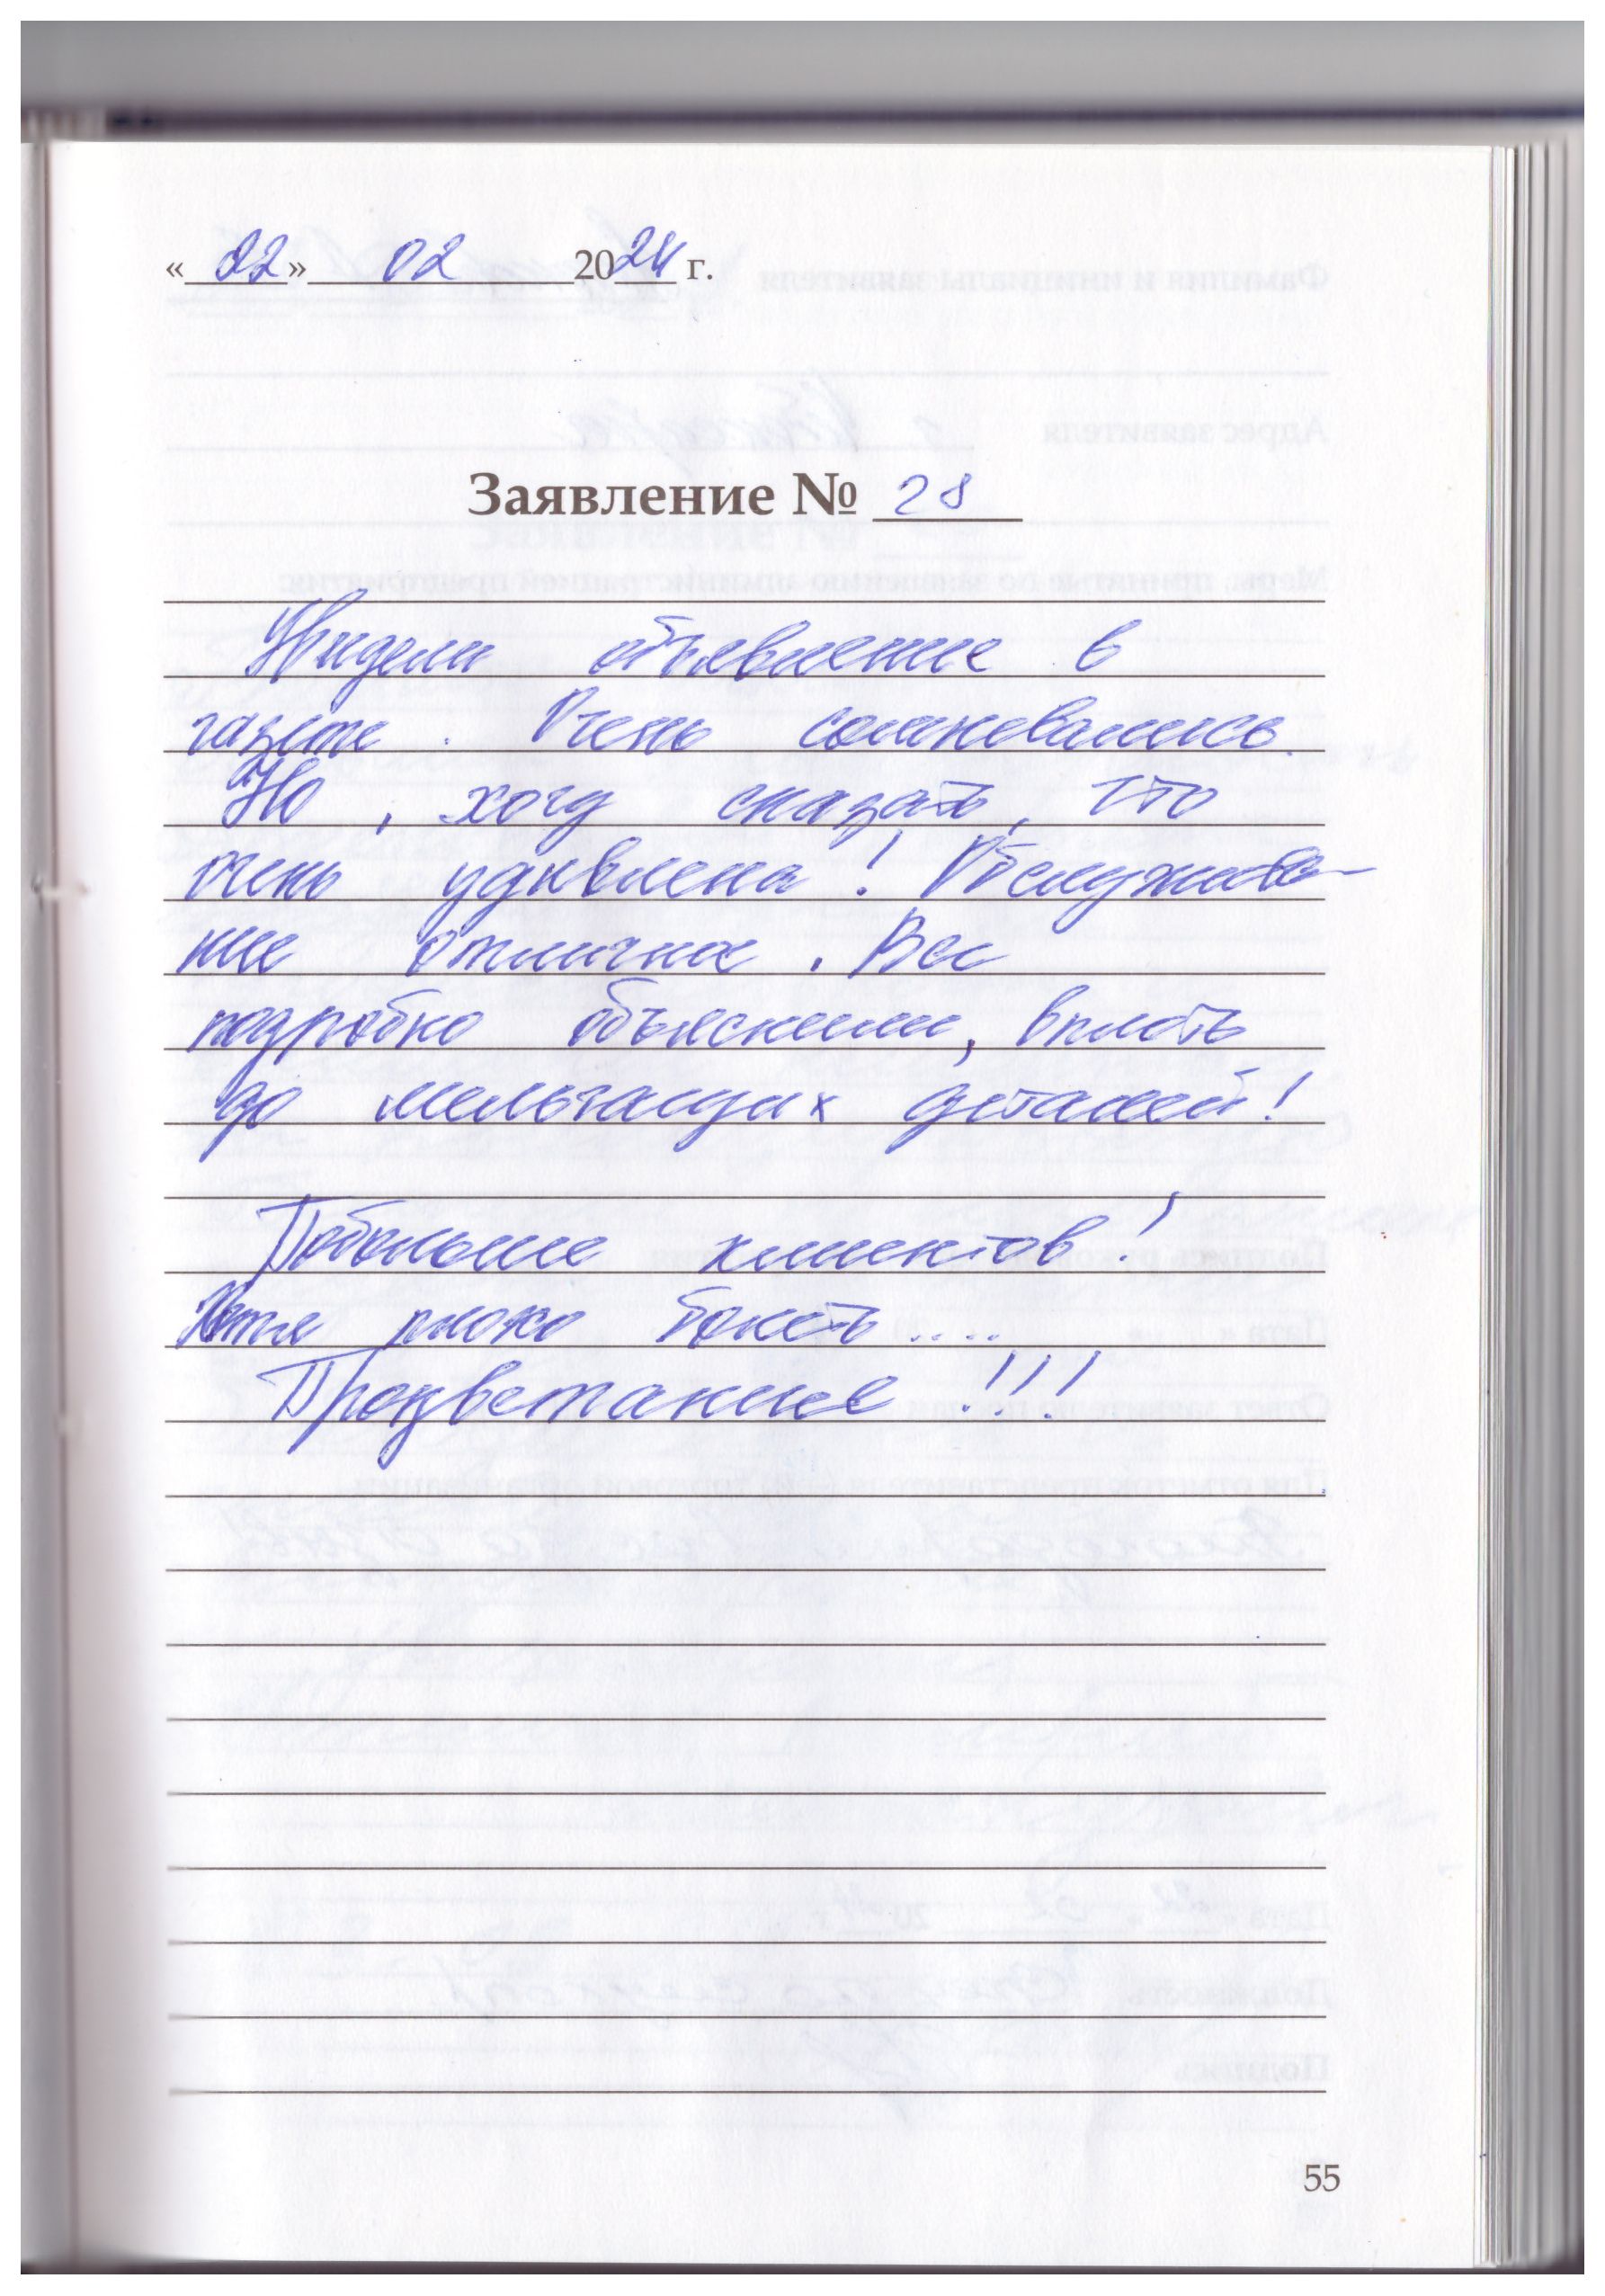 «22» 02 2024 г.
Заявление № 28
Увидели объявление в
газете. Очень сомневались.
Но, хочу сказать, что
очень удивлена! Обслужива-
ние отличное. Все
подробно объяснили, вплоть
до мельчайших деталей!
Побольше клиентов!
Хотя плохо болеть....
Процветания!!!
55